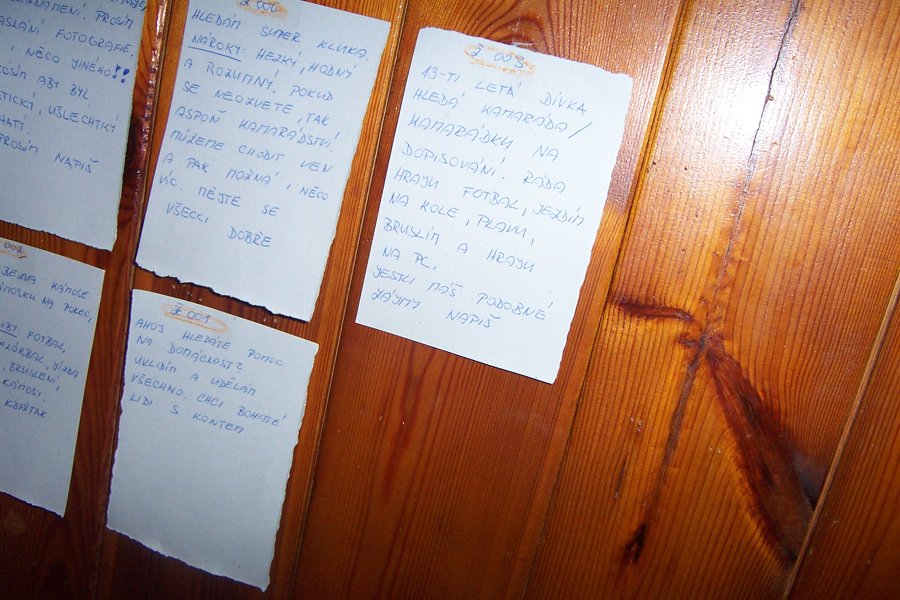 ZNÁMENÍ. PROSÍM
ASLÁNÍ FOTOGRAFIE.
NĚCO JINÉHO!!
ABY BYL
UŠLECHTILÝ
PROSÍM NAPIŠ
HLEDÁM SUPER KLUKA.
NÁROKY: HEZKÝ, HODNÝ
A ROZUMNÝ. POKUD
SE NEOZVETE, TAK
ASPOŇ KAMARÁDSTVÍ.
MŮŽEME CHODIT VEN
A PAK MOŽNÁ I NĚCO
VÍC. MĚJTE SE
VŠICCI DOBŘE
Ž 003
13-TI LETÁ DÍVKA
HLEDÁ KAMARÁDA/
KAMARÁDKU NA
DOPISOVÁNÍ. RÁDA
HRAJU FOTBAL, JEZDÍM
NA KOLE, PLAVU,
BRUSLÍM A HRAJU
NA PC.
JESTLI MÁŠ PODOBNÉ
ZÁJMY NAPIŠ
BEZVA KÁMOŠE
NA POKEC,
FOTBAL,
FLÓRBAL, JÍZDA
BRUSLENÍ.
KÁMOŠI.
KDYŽTAK
Ž 001
AHOJ HLEDÁTE POMOC
NA DOMÁCNOST?
UKLIDÍM A UDĚLÁM
VŠECHNO. CHCI BOHATÉ
LIDI S KONTEM